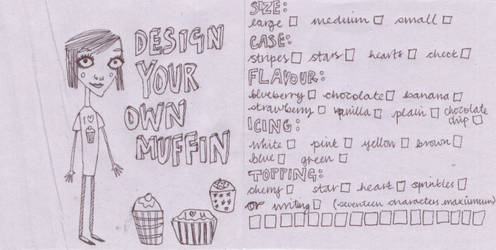 DESIGN
YOUR
OWN
MUFFIN
I ♡
I ♡ U
SIZE:
large □ meduim □ small □
CASE:
stripes □ stars □ hearts □ check □
FLAVOUR:
blueberry □ chocolate □ banana □
strawberry □ vanilla □ plain □ chocolate chip □
ICING:
white □ pink □ yellow □ brown □
blue □ green □
TOPPING:
cherry □ star □ heart □ sprinkles □
or writing □ (seventeen characters maxiumum)